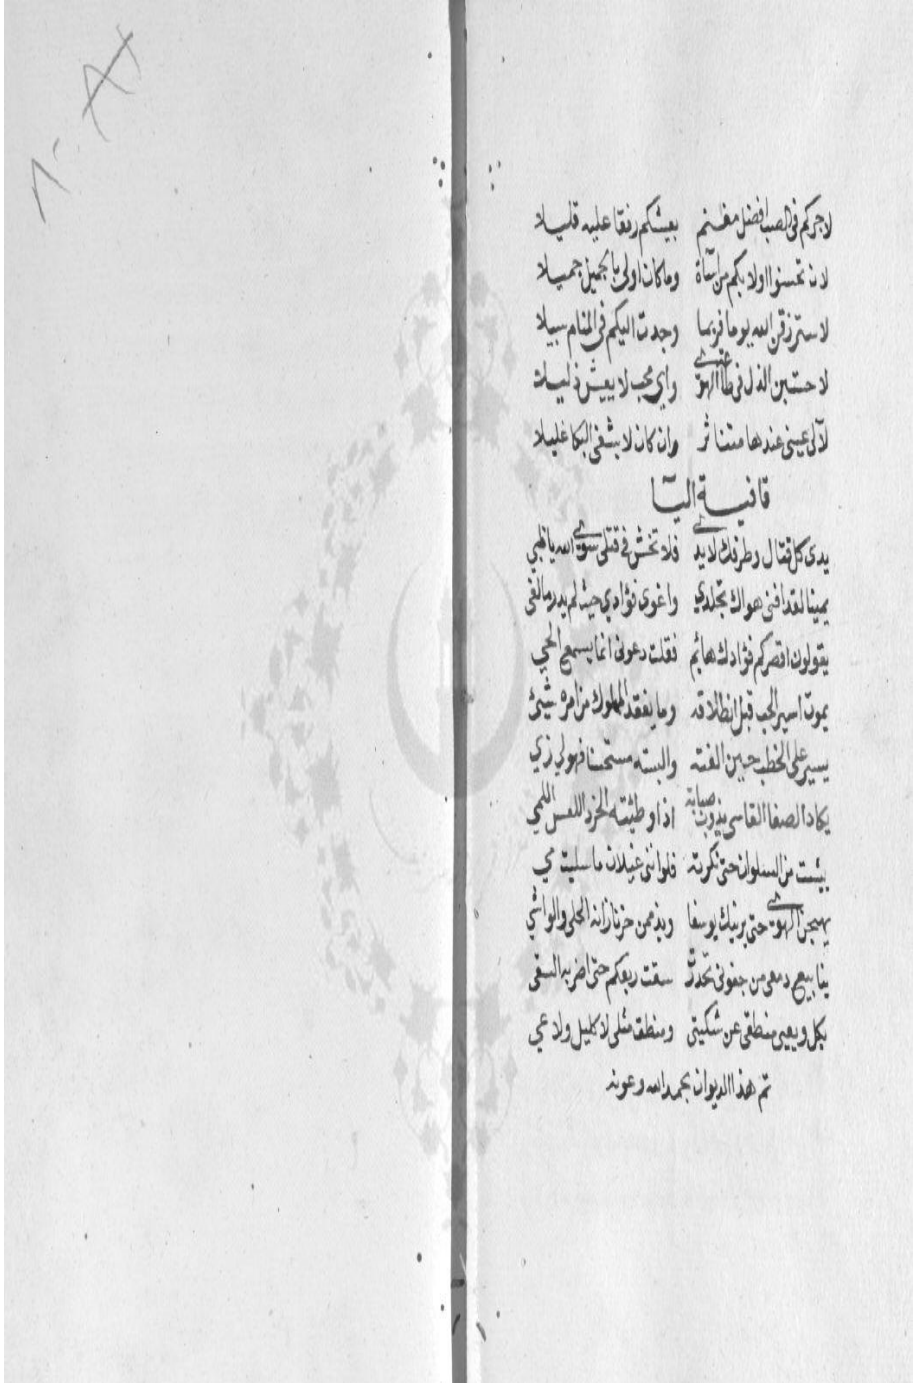 لاجركم فى الصب افضل مغنم بعيشكم رفقا عليه قليلا
لان تحسنوا اولا بكم من اسآة وما كان اولى بالجميل جميلا
لاسترزقن الله يوما فربما وجدت اليكم فى المنام سبيلا
لاحتسبن الذل فى الهوى واي محب لا يعيش ذليلا
لآلى عينى عندها متناثر وان كان لا يشفى البكا غليلا
قافية اليآ
يدى كل قتال وطرفك لا يدى فلا تخش فى قتلى سوى الله يا ظبي
يمينا لقد افنى هواك تجلدي واغوى فؤادي حيث لم يدر ما الغى
يقولون اقصركم فؤادك هائم فقلت دعونى انما يسمع الحي
يموت اسير الحب قبل انطلاقه وما يفقد المملوك من امره شيئ
يسير على الخطب حين الفته والبسته مستحسنا فهو لي زي
يكاد الصفا القاسى يذوب صبابة اذا وطئته الخرد اللعس اللمي
يئست من السلوان حتى نكرته فلو اننى غيلان ما سليت مي
يهيجن الهوى حتى يرينك يوسفا ويذممن حزنا زانه الحلى والواشي
ينابيع دمعى من جفونى تحدرت سقت ربعكم حتى اضر به السقى
يكل ويعيى منطقى عن شكيتى ومنطق مثلى لا كليل ولا عي
تم هذا الديوان بحمد الله وعونه